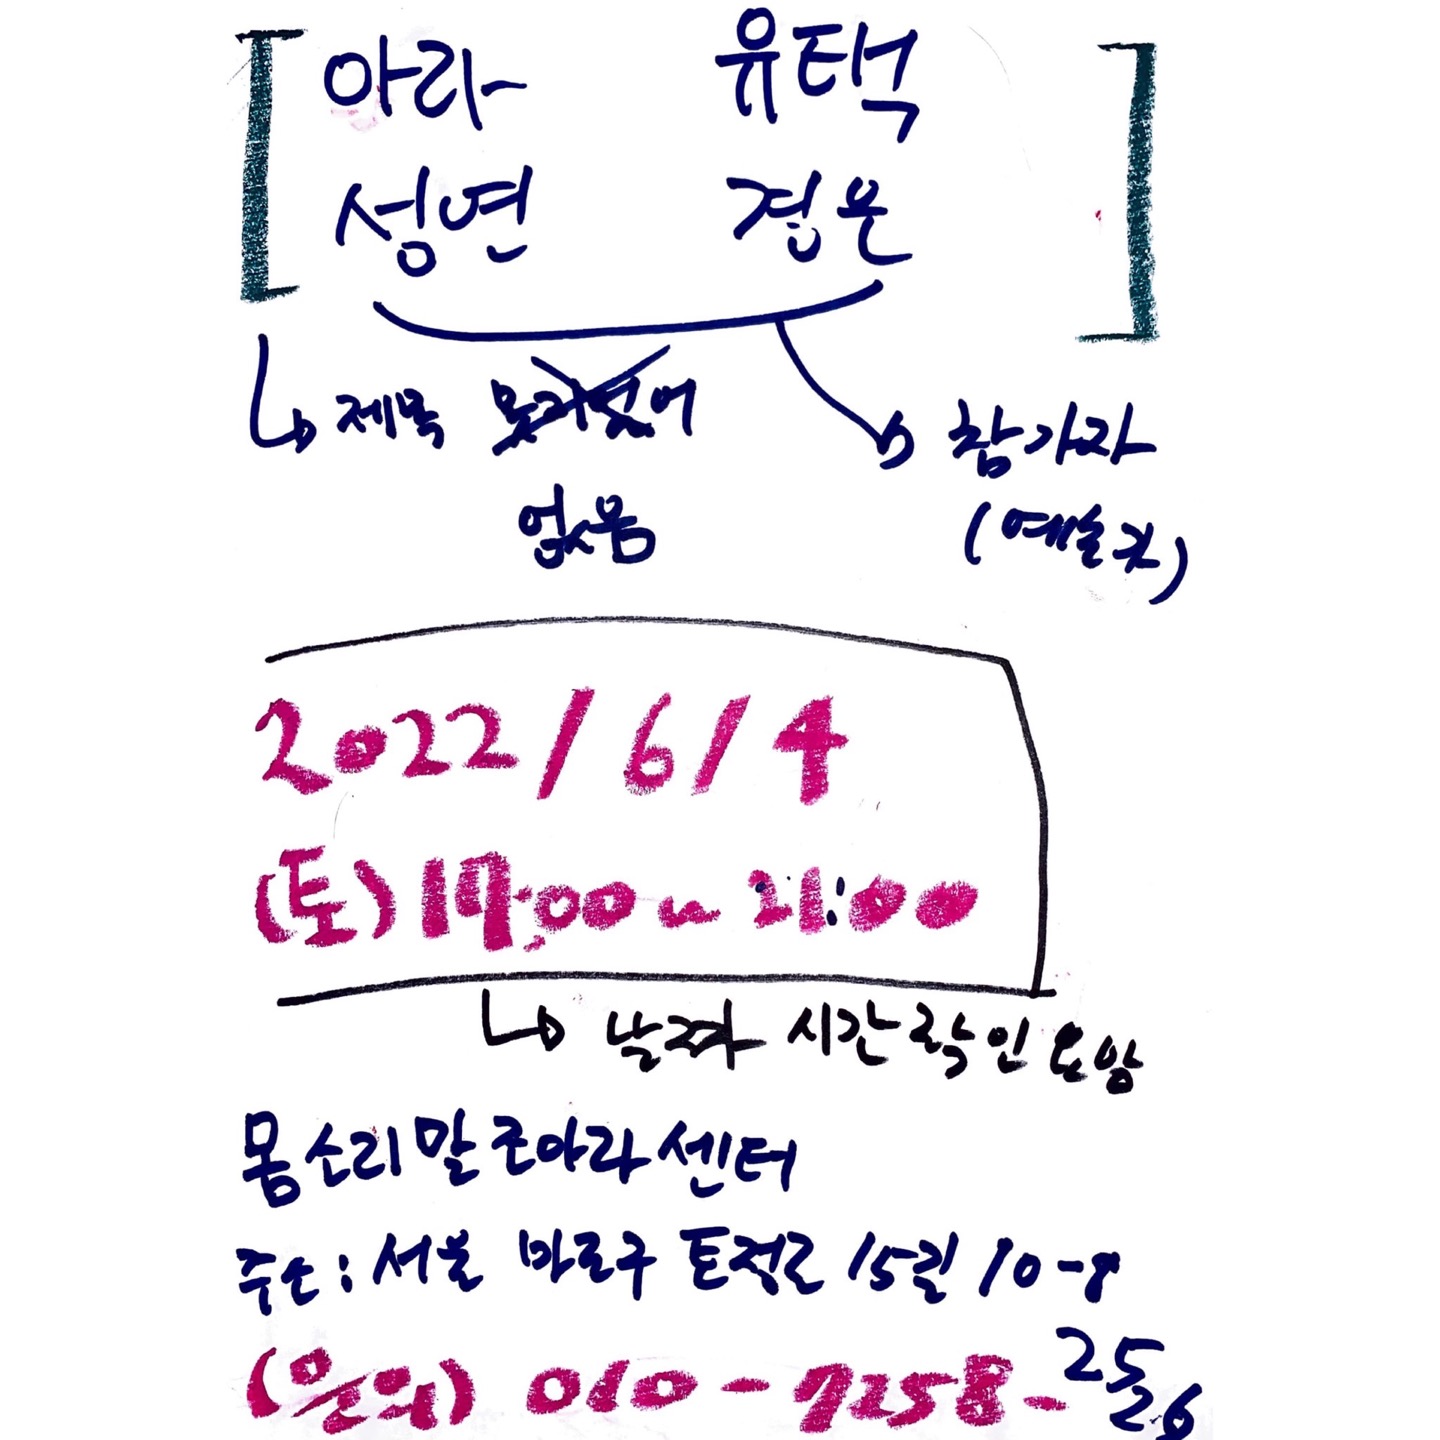 아라 유택
성연 경은
제목
없음
참가자
(예술가)
2022/6/4
(토) 17:00~21:00
날짜 시간 확인 요망
몸소리말 조아라 센터
주소: 서울 마포구 토정로 15길 10-8
(문의) 010-7258-2526